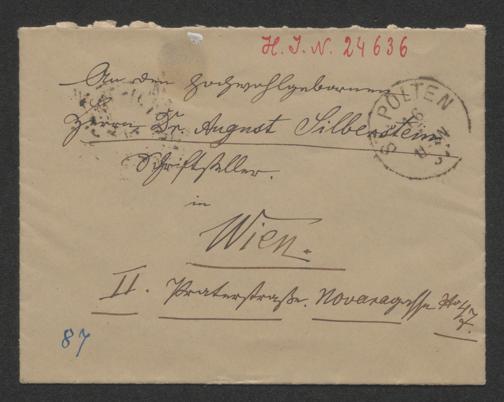 H. I. N. 24636
An den hochwohlgebornen
Herrn Dr. August Silberstein
Schriftsteller.
in
Wien.
II. Praterstraße. Novaragasse No 47
87
ST. PÖLTEN